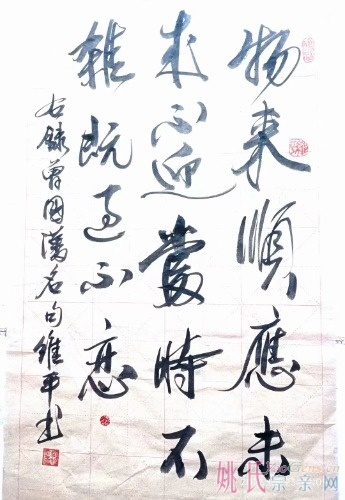 物来順應未
来不迎當時不
雜既过不恋
右録曾國藩名句維平书
姚氏宗亲网